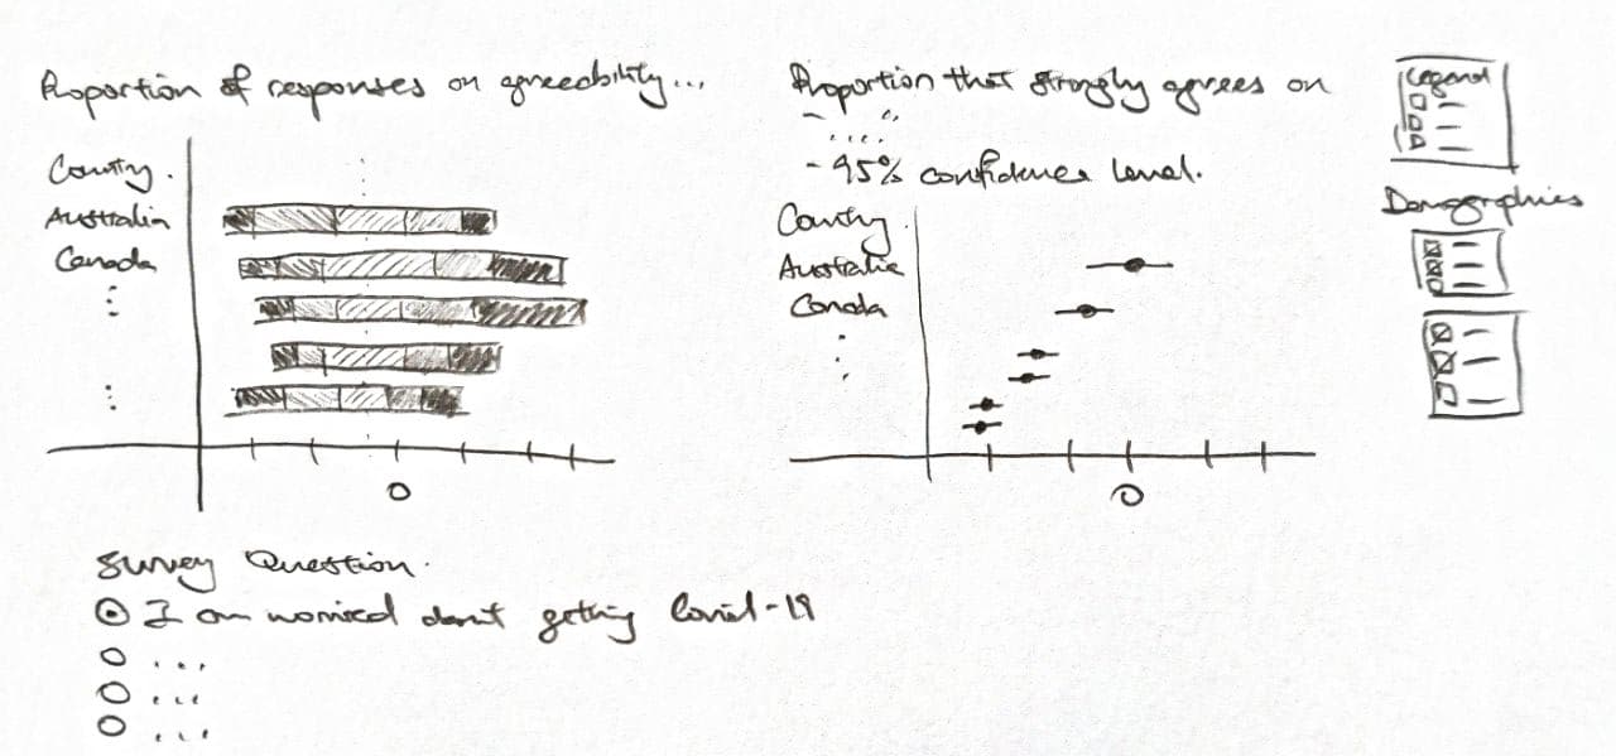 Proportion of responses on agreeability...
Country.
Australia
Canada
0
Proportion that strongly agrees on
- 95% confidence level.
Country
Australia
Canada
0
Legend
Demographics
Survey Question.
I am worried about getting Covid-19
...
...
...